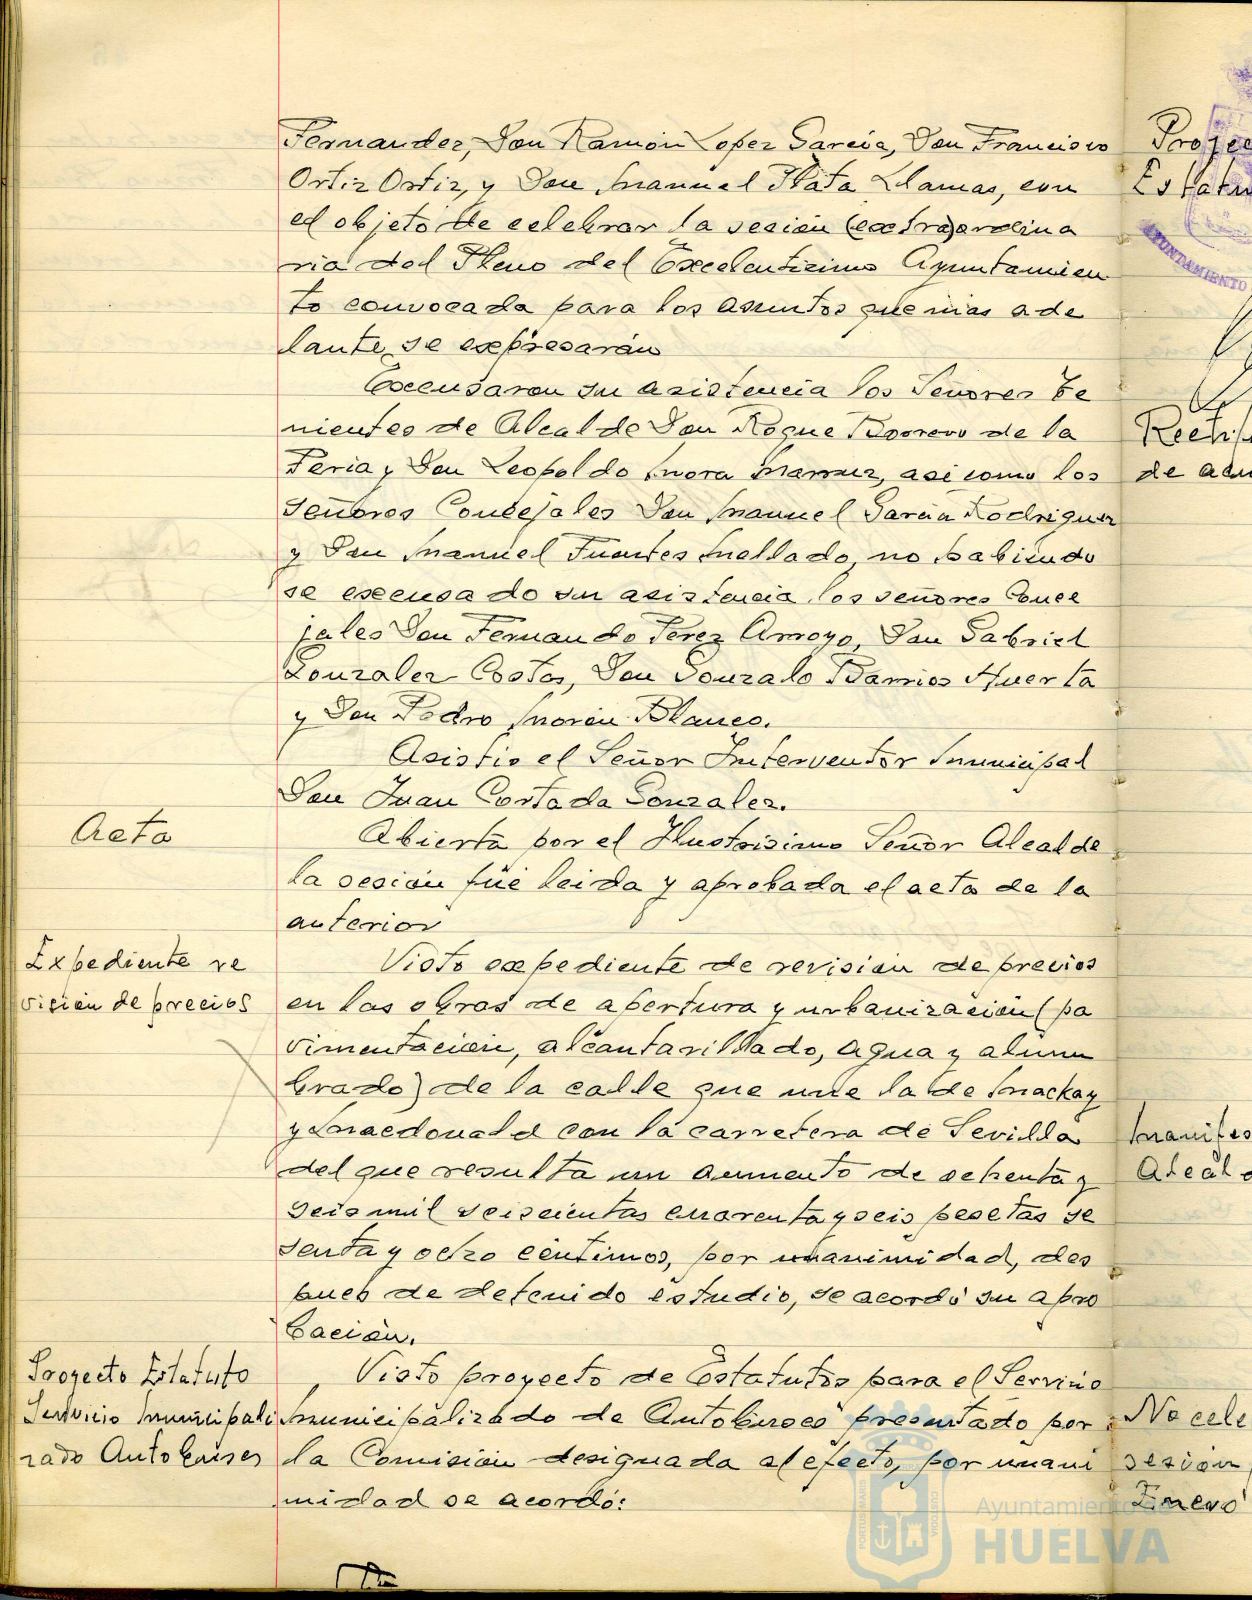 Fernandez, Don Ramón Lopez García, Don Francisco
Ortiz Ortiz, y Don Manuel Plata Llamas, con
el objeto de celebrar la sesión (extra)ordina
ria del Pleno del Excelentisimo Ayuntamien
to convocada para los asuntos que mas ade
lante se expresarán
Excusaron su asistencia los Señores Te
nientes de Alcalde Don Roque Borrero de la
Feria y Don Leopoldo Mora, asi como los
Señores Concejales Don Manuel García Rodriguez
y Don Manuel Fuentes Mellado, no habiendo
se excusado su asistencia los señores Conce
jales Don Fernando Perez Arroyo, Don Gabriel
Gonzalez Costas, Don Gonzalo Barrios Huerta
y Don Pedro Morón Blanco.
Asistio el Señor Interventor Municipal
Don Juan Cortada Gonzalez.
Acta
Abierta por el Ilustrisimo Señor Alcalde
la sesión fué leida y aprobada el acta de la
anterior
Expediente re
visión de precios
Visto expediente de revisión de precios
en las obras de apertura y urbanización (pa
vimentación, alcantarillado, agua y alum
brado) de la calle que une la de Mackay
y Macdonald con la carretera de Sevilla
del que resulta un aumento de setenta y
seis mil seiscientas cuarenta y seis pesetas se
senta y ocho céntimos, por unanimidad, des
pues de detenido estudio, se acordó su apro
bación.
Proyecto Estatuto
Servicio Municipali
zado Autobuses
Visto proyecto de Estatutos para el Servicio
Municipalizado de Autobuses presentado por
la Comisión designada al efecto, por unani
midad se acordó:
Proyec
Estatu
AYUNTAMIENTO
Rectif
de acu
Manifes
Alcal
No cele
sesión
Enero
Ayuntamiento de
HUELVA
PORTUS MARIS
CUSTODIA